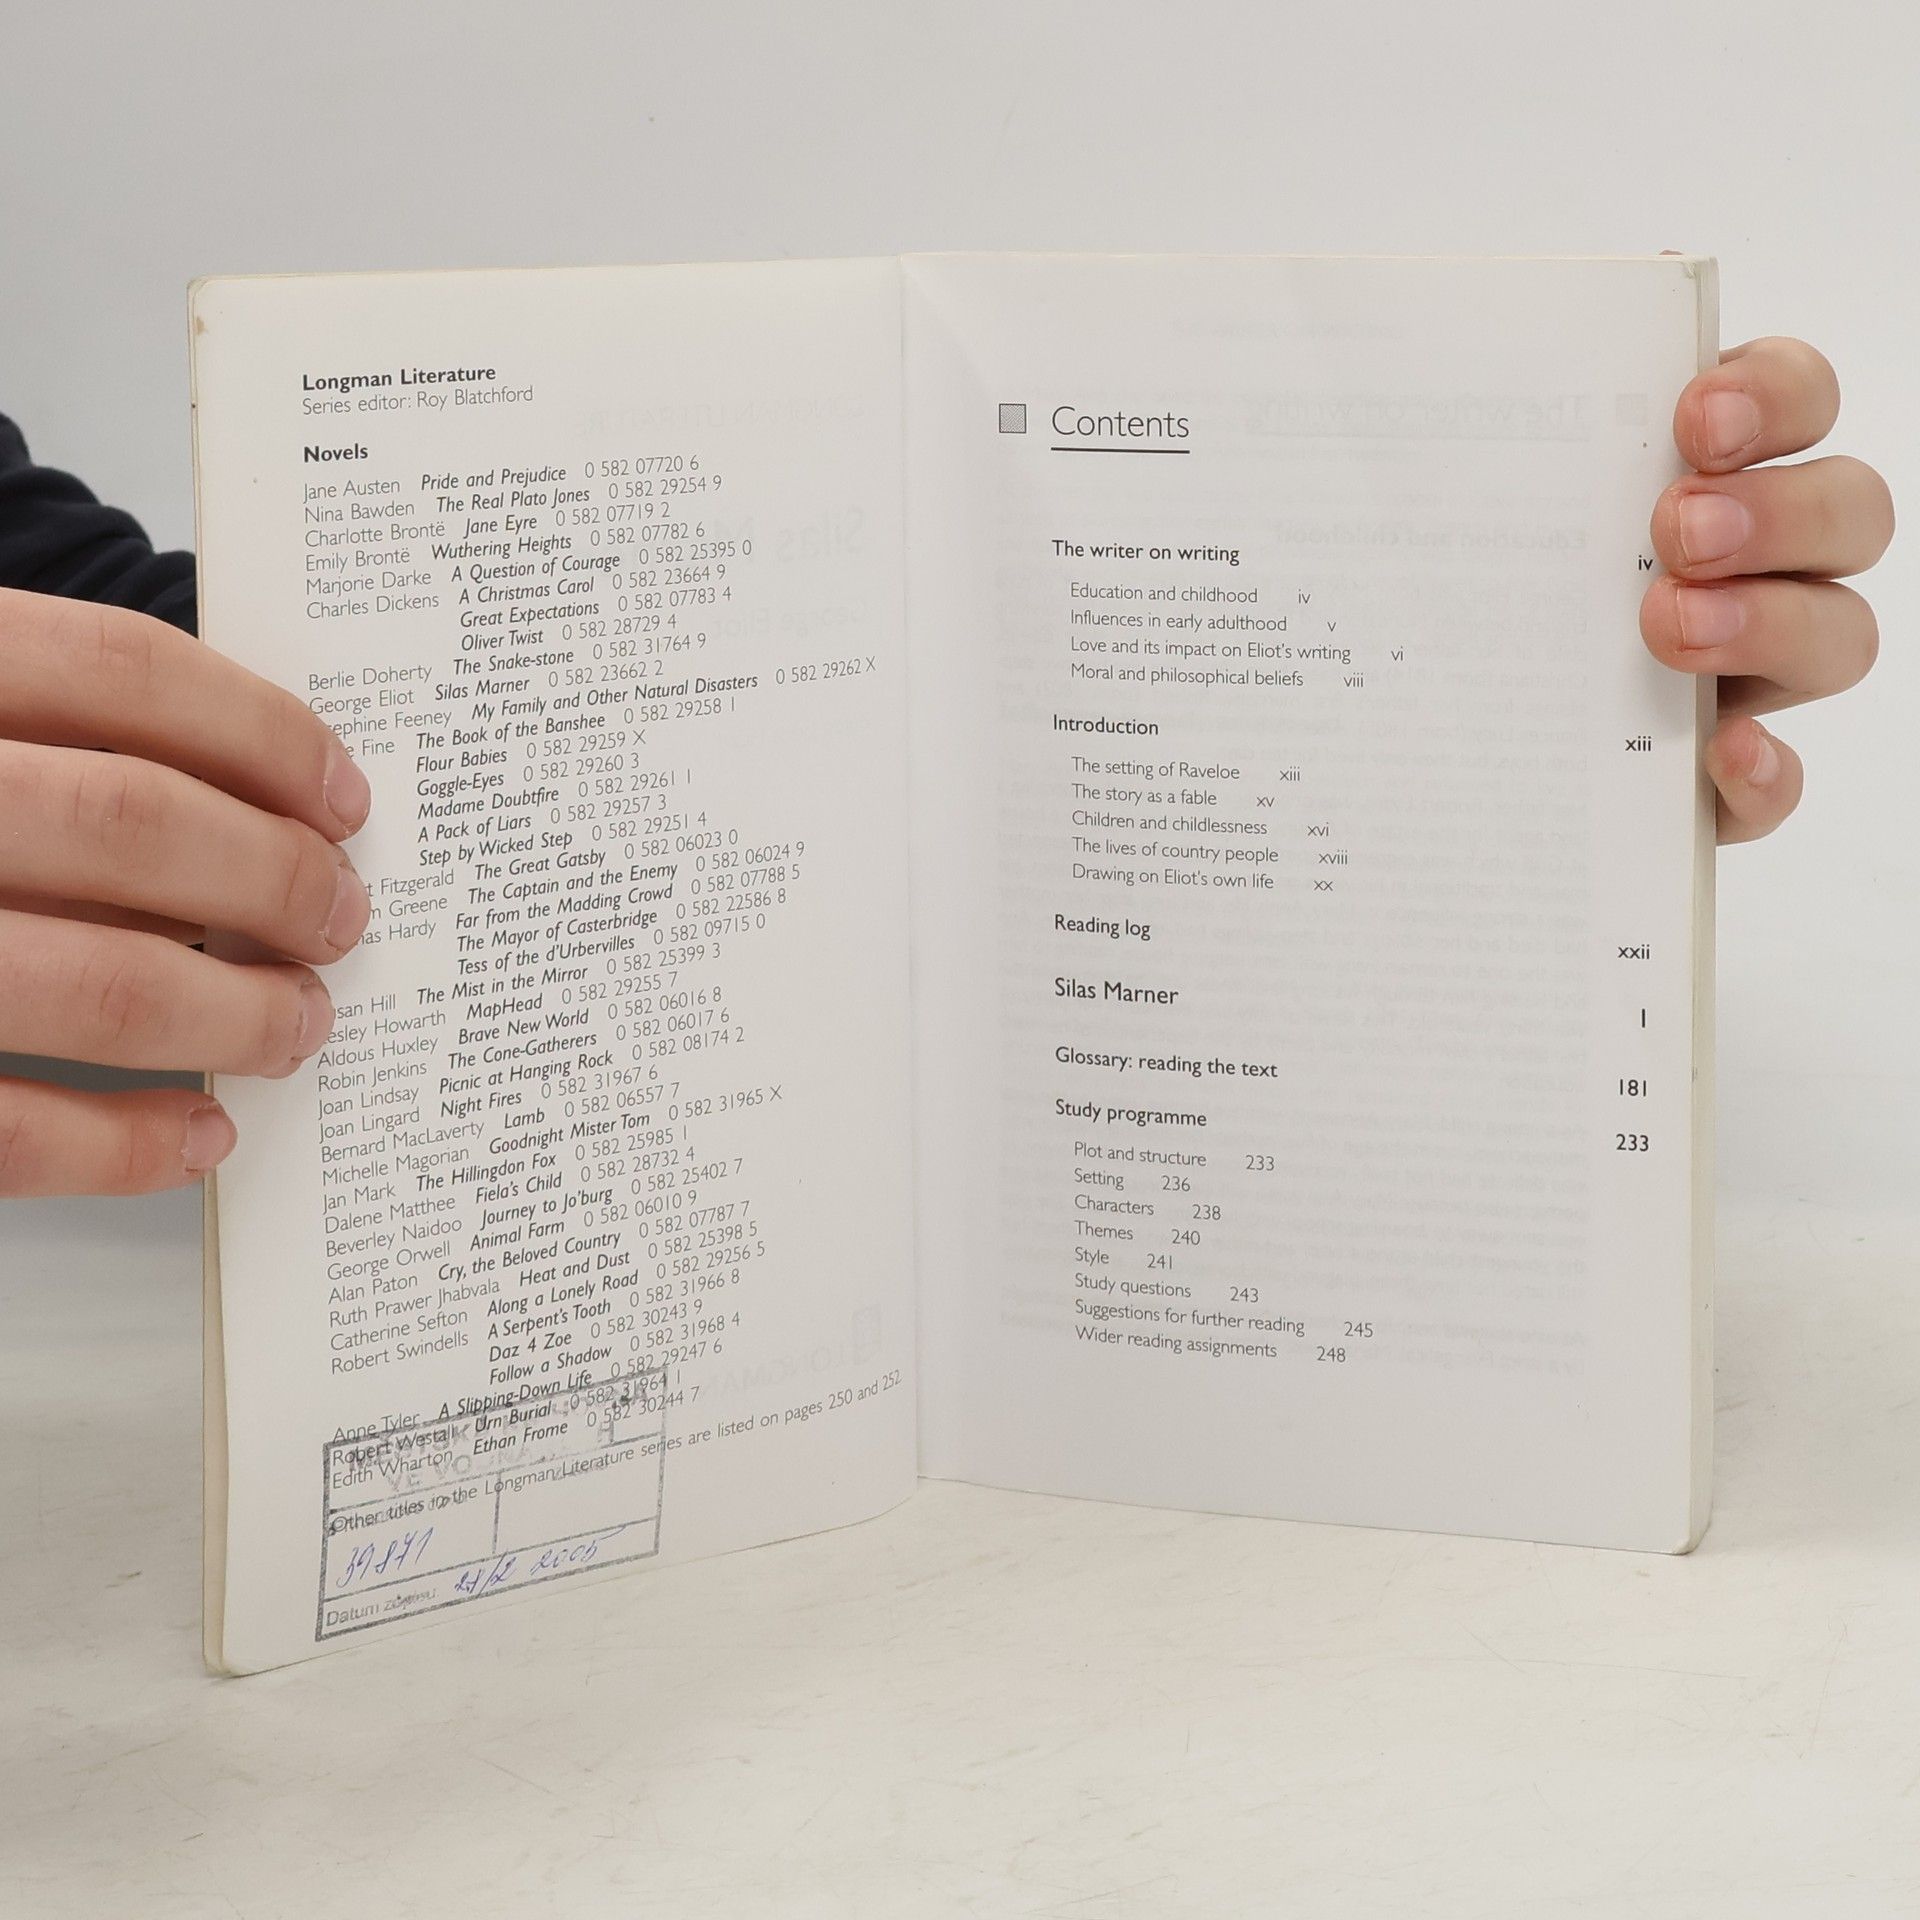 Longman Literature
Series editor: Roy Blatchford
Novels
Jane Austen Pride and Prejudice 0 582 07720 6
Nina Bawden The Real Plato Jones 0 582 29254 9
Charlotte Brontë Jane Eyre 0 582 07719 2
Emily Brontë Wuthering Heights 0 582 07782 6
Marjorie Darke A Question of Courage 0 582 25395 0
Charles Dickens A Christmas Carol 0 582 23664 9
Great Expectations 0 582 07783 4
Oliver Twist 0 582 28729 4
Berlie Doherty The Snake-stone 0 582 31764 9
George Eliot Silas Marner 0 582 23662 2
ephine Feeney My Family and Other Natural Disasters 0 582 29262 X
e Fine The Book of the Banshee 0 582 29258 1
Flour Babies 0 582 29259 X
Goggle-Eyes 0 582 29260 3
Madame Doubtfire 0 582 29261 1
A Pack of Liars 0 582 29257 3
Step by Wicked Step 0 582 29251 4
t Fitzgerald The Great Gatsby 0 582 06023 0
m Greene The Captain and the Enemy 0 582 06024 9
as Hardy Far from the Madding Crowd 0 582 07788 5
The Mayor of Casterbridge 0 582 22586 8
Tess of the d'Urbervilles 0 582 09715 0
san Hill The Mist in the Mirror 0 582 25399 3
esley Howarth MapHead 0 582 29255 7
Aldous Huxley Brave New World 0 582 06016 8
Robin Jenkins The Cone-Gatherers 0 582 06017 6
Joan Lindsay Picnic at Hanging Rock 0 582 08174 2
Joan Lingard Night Fires 0 582 31967 6
Bernard MacLaverty Lamb 0 582 06557 7
Michelle Magorian Goodnight Mister Tom 0 582 31965 X
Jan Mark The Hillingdon Fox 0 582 25985 1
Dalene Matthee Fiela's Child 0 582 28732 4
Beverley Naidoo Journey to Jo'burg 0 582 25402 7
George Orwell Animal Farm 0 582 06010 9
Alan Paton Cry, the Beloved Country 0 582 07787 7
Ruth Prawer Jhabvala Heat and Dust 0 582 25398 5
Catherine Sefton Along a Lonely Road 0 582 29256 5
Robert Swindells A Serpent's Tooth 0 582 31966 8
Daz 4 Zoe 0 582 30243 9
Follow a Shadow 0 582 31968 4
Anne Tyler A Slipping-Down Life 0 582 29247 6
Robert Westall Urn Burial 0 582 31964 1
Edith Wharton Ethan Frome 0 582 30244 7
Other titles in the Longman Literature series are listed on pages 250 and 252
39871
Datum zápisu: 28/2 2005
Contents
The writer on writing iv
Education and childhood iv
Influences in early adulthood v
Love and its impact on Eliot's writing vi
Moral and philosophical beliefs viii
Introduction xiii
The setting of Raveloe xiii
The story as a fable xv
Children and childlessness xvi
The lives of country people xviii
Drawing on Eliot's own life xx
Reading log xxii
Silas Marner 1
Glossary: reading the text 181
Study programme 233
Plot and structure 233
Setting 236
Characters 238
Themes 240
Style 241
Study questions 243
Suggestions for further reading 245
Wider reading assignments 248